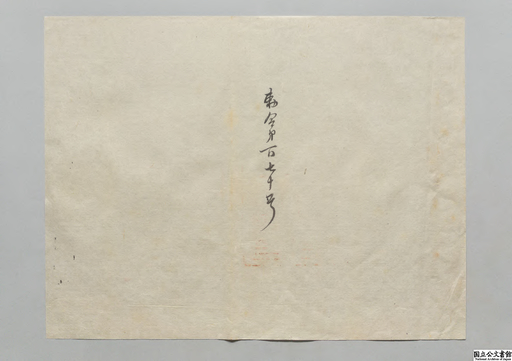 勅令第百七十号
国立公文書館
National Archives of Japan